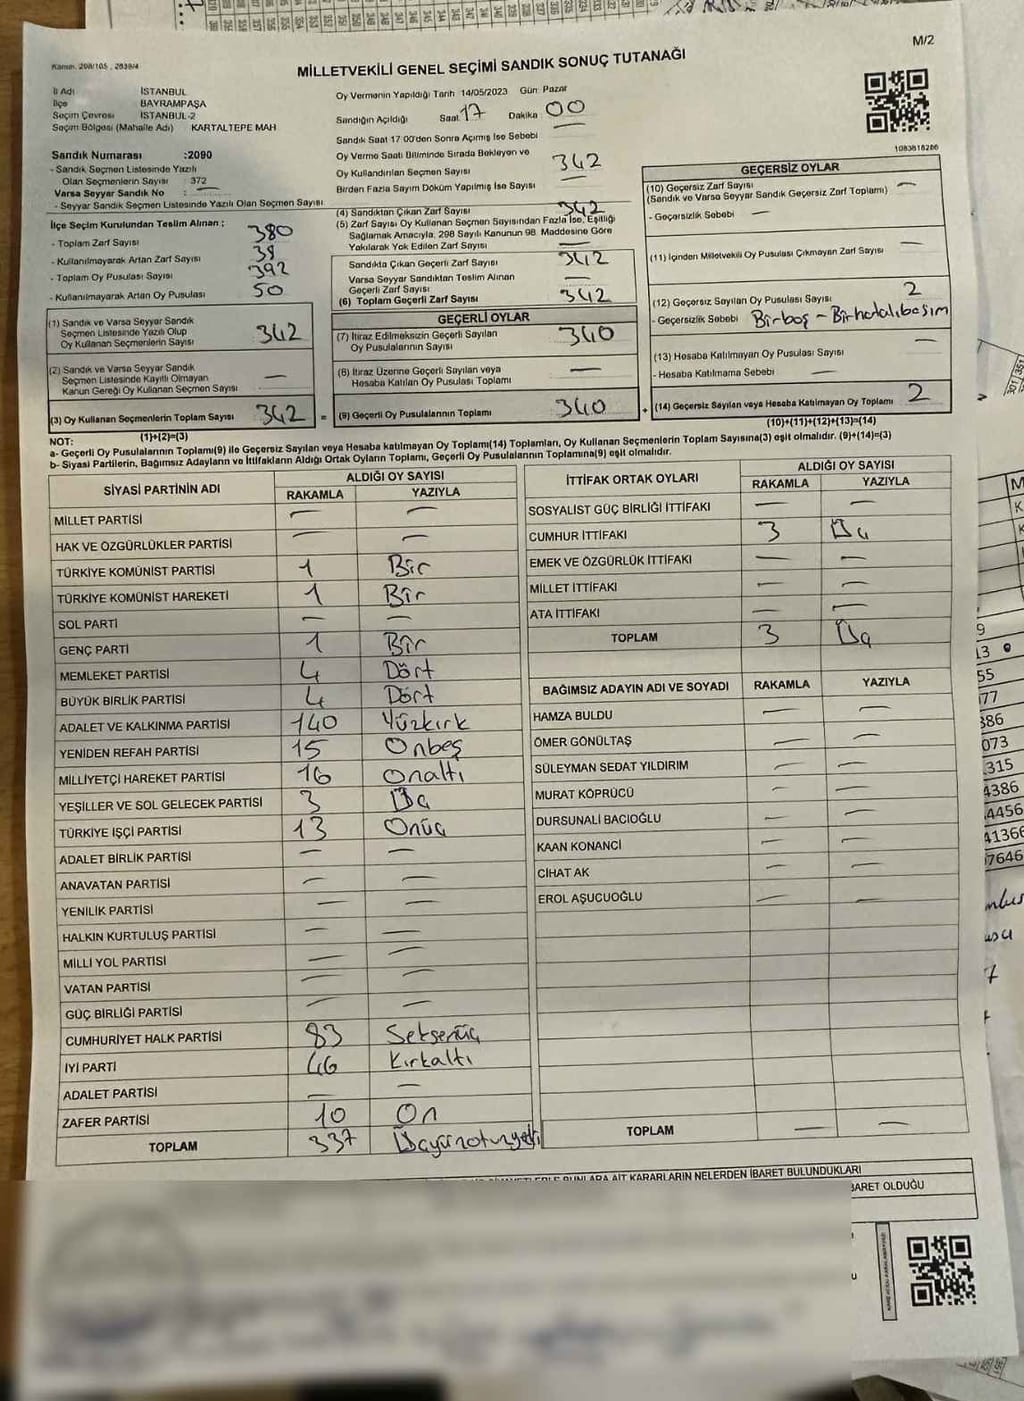 M/2
Kanun. 298/105 , 2839/4
MİLLETVEKİLİ GENEL SEÇİMİ SANDIK SONUÇ TUTANAĞI
İl Adı İSTANBUL
İlçe BAYRAMPAŞA
Seçim Çevresi İSTANBUL-2
Seçim Bölgesi (Mahalle Adı) KARTALTEPE MAH
Sandık Numarası :2090
- Sandık Seçmen Listesinde Yazılı
Olan Seçmenlerin Sayısı : 372
Varsa Seyyar Sandık No : —
- Seyyar Sandık Seçmen Listesinde Yazılı Olan Seçmen Sayısı
İlçe Seçim Kurulundan Teslim Alınan :
- Toplam Zarf Sayısı 380
- Kullanılmayarak Artan Zarf Sayısı 38
- Toplam Oy Pusulası Sayısı 392
- Kullanılmayarak Artan Oy Pusulası 50
(1) Sandık ve Varsa Seyyar Sandık
Seçmen Listesinde Yazılı Olup
Oy Kullanan Seçmenlerin Sayısı 342
(2) Sandık ve Varsa Seyyar Sandık
Seçmen Listesinde Kayıtlı Olmayan
Kanun Gereği Oy Kullanan Seçmen Sayısı —
(3) Oy Kullanan Seçmenlerin Toplam Sayısı 342 =
(1)+(2)=(3)
Oy Vermenin Yapıldığı Tarih 14/05/2023 Gün: Pazar
Sandığın Açıldığı Saat 17 Dakika 00
Sandık Saat 17 00'den Sonra Açımış İse Sebebi —
Oy Verme Saati Bitiminde Sırada Bekleyen ve
Oy Kullandırılan Seçmen Sayısı 342
Birden Fazla Sayım Döküm Yapılmış İse Sayısı —
(4) Sandıktan Çıkan Zarf Sayısı 342
(5) Zarf Sayısı Oy Kullanan Seçmen Sayısından Fazla İse, Eşitliği
Sağlamak Amacıyla, 298 Sayılı Kanunun 98. Maddesine Göre
Yakılarak Yok Edilen Zarf Sayısı —
Sandıkta Çıkan Geçerli Zarf Sayısı 342
Varsa Seyyar Sandıktan Teslim Alınan
Geçerli Zarf Sayısı —
(6) Toplam Geçerli Zarf Sayısı 342
GEÇERLİ OYLAR
(7) İtiraz Edilmeksizin Geçerli Sayılan
Oy Pusulalarının Sayısı 340
(8) İtiraz Üzerine Geçerli Sayılan veya
Hesaba Katılan Oy Pusulası Toplamı —
(9) Geçerli Oy Pusulalarının Toplamı 340 +
1083818286
GEÇERSİZ OYLAR
(10) Geçersiz Zarf Sayısı —
(Sandık ve Varsa Seyyar Sandık Geçersiz Zarf Toplamı)
- Geçersizlik Sebebi —
(11) İçinden Milletvekili Oy Pusulası Çıkmayan Zarf Sayısı —
(12) Geçersiz Sayılan Oy Pusulası Sayısı 2
- Geçersizlik Sebebi Birboş - Birhatalıbasım
(13) Hesaba Katılmayan Oy Pusulası Sayısı —
- Hesaba Katılmama Sebebi —
(14) Geçersiz Sayılan veya Hesaba Katılmayan Oy Toplamı 2
(10)+(11)+(12)+(13)=(14)
NOT:
a- Geçerli Oy Pusulalarının Toplamı(9) ile Geçersiz Sayılan veya Hesaba katılmayan Oy Toplamı(14) Toplamları, Oy Kullanan Seçmenlerin Toplam Sayısına(3) eşit olmalıdır. (9)+(14)=(3)
b- Siyasi Partilerin, Bağımsız Adayların ve İttifakların Aldığı Ortak Oyların Toplamı, Geçerli Oy Pusulalarının Toplamına(9) eşit olmalıdır.
SİYASİ PARTİNİN ADI ALDIĞI OY SAYISI
RAKAMLA YAZIYLA
MİLLET PARTİSİ — —
HAK VE ÖZGÜRLÜKLER PARTİSİ — —
TÜRKİYE KOMÜNİST PARTİSİ 1 Bir
TÜRKİYE KOMÜNİST HAREKETİ 1 Bir
SOL PARTİ — —
GENÇ PARTİ 1 Bir
MEMLEKET PARTİSİ 4 Dört
BÜYÜK BİRLİK PARTİSİ 4 Dört
ADALET VE KALKINMA PARTİSİ 140 Yüzkırk
YENİDEN REFAH PARTİSİ 15 Onbeş
MİLLİYETÇİ HAREKET PARTİSİ 16 Onaltı
YEŞİLLER VE SOL GELECEK PARTİSİ 3 Üç
TÜRKİYE İŞÇİ PARTİSİ 13 Onüç
ADALET BİRLİK PARTİSİ — —
ANAVATAN PARTİSİ — —
YENİLİK PARTİSİ — —
HALKIN KURTULUŞ PARTİSİ — —
MİLLİ YOL PARTİSİ — —
VATAN PARTİSİ — —
GÜÇ BİRLİĞİ PARTİSİ — —
CUMHURİYET HALK PARTİSİ 83 Seksenüç
İYİ PARTİ 46 Kırkaltı
ADALET PARTİSİ — —
ZAFER PARTİSİ 10 On
TOPLAM 337 Üçyüzotuzyedi
İTTİFAK ORTAK OYLARI ALDIĞI OY SAYISI
RAKAMLA YAZIYLA
SOSYALİST GÜÇ BİRLİĞİ İTTİFAKI — —
CUMHUR İTTİFAKI 3 Üç
EMEK VE ÖZGÜRLÜK İTTİFAKI — —
MİLLET İTTİFAKI — —
ATA İTTİFAKI — —
TOPLAM 3 Üç
BAĞIMSIZ ADAYIN ADI VE SOYADI RAKAMLA YAZIYLA
HAMZA BULDU — —
ÖMER GÖNÜLTAŞ — —
SÜLEYMAN SEDAT YILDIRIM — —
MURAT KÖPRÜCÜ — —
DURSUNALİ BACIOĞLU — —
KAAN KONANCİ — —
CİHAT AK — —
EROL AŞUCUOĞLU — —
TOPLAM — —
BUNLARA AİT KARARLARIN NELERDEN İBARET BULUNDUKLARI
BARET OLDUĞU